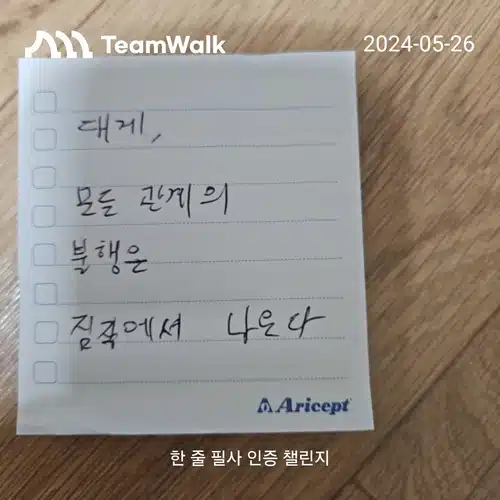 TeamWalk
2024-05-26
대게,
모든 관계의
불행은
짐작에서 나온다
Aricept
한 줄 필사 인증 챌린지